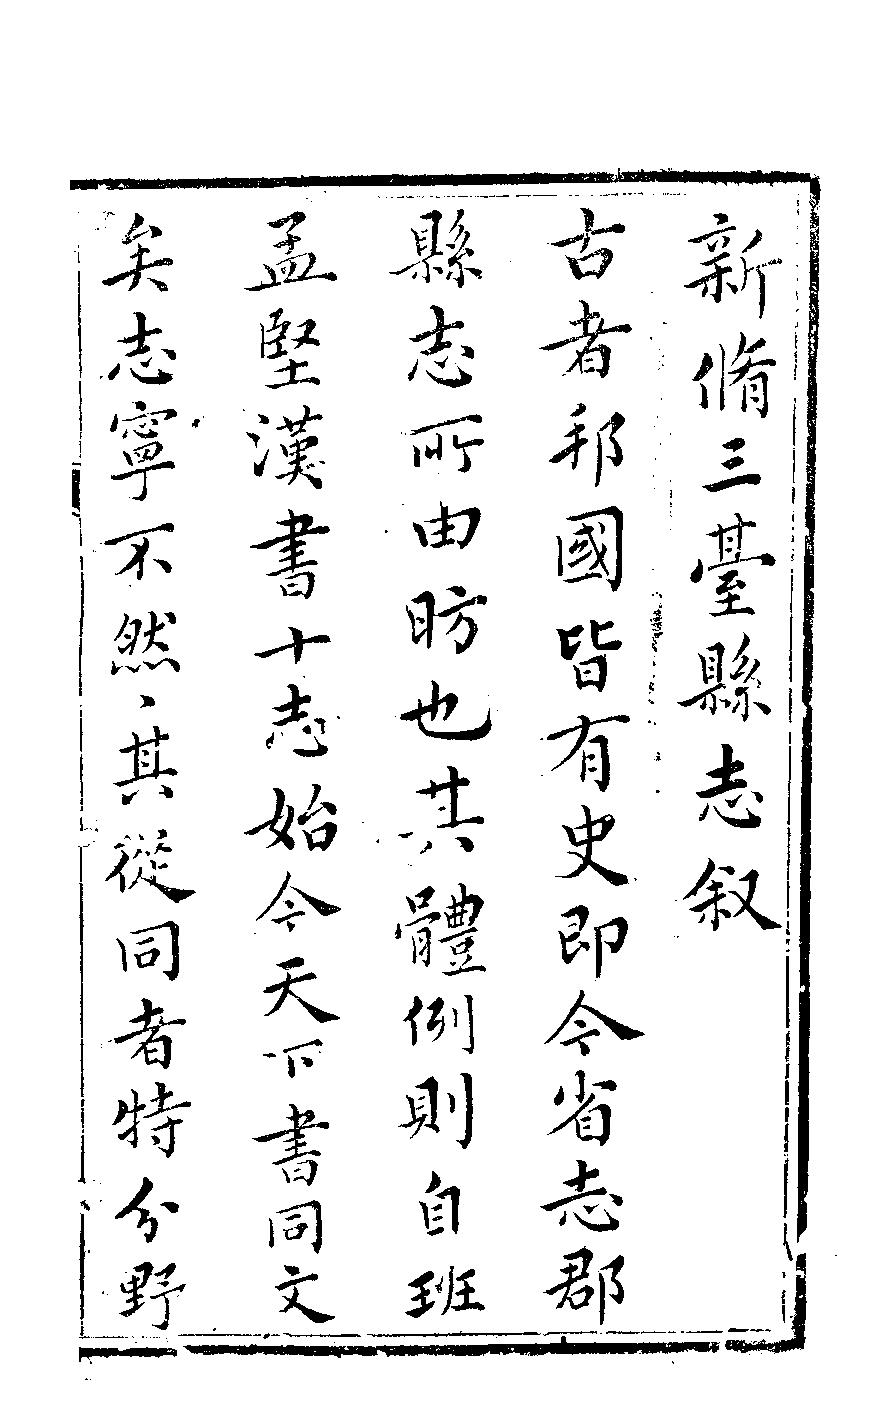 新脩三臺縣志叙
古者邦國皆有史即今省志郡
縣志所由昉也其體例則自班
孟堅漢書十志始今天下書同文
矣志寧不然、其從同者特分野